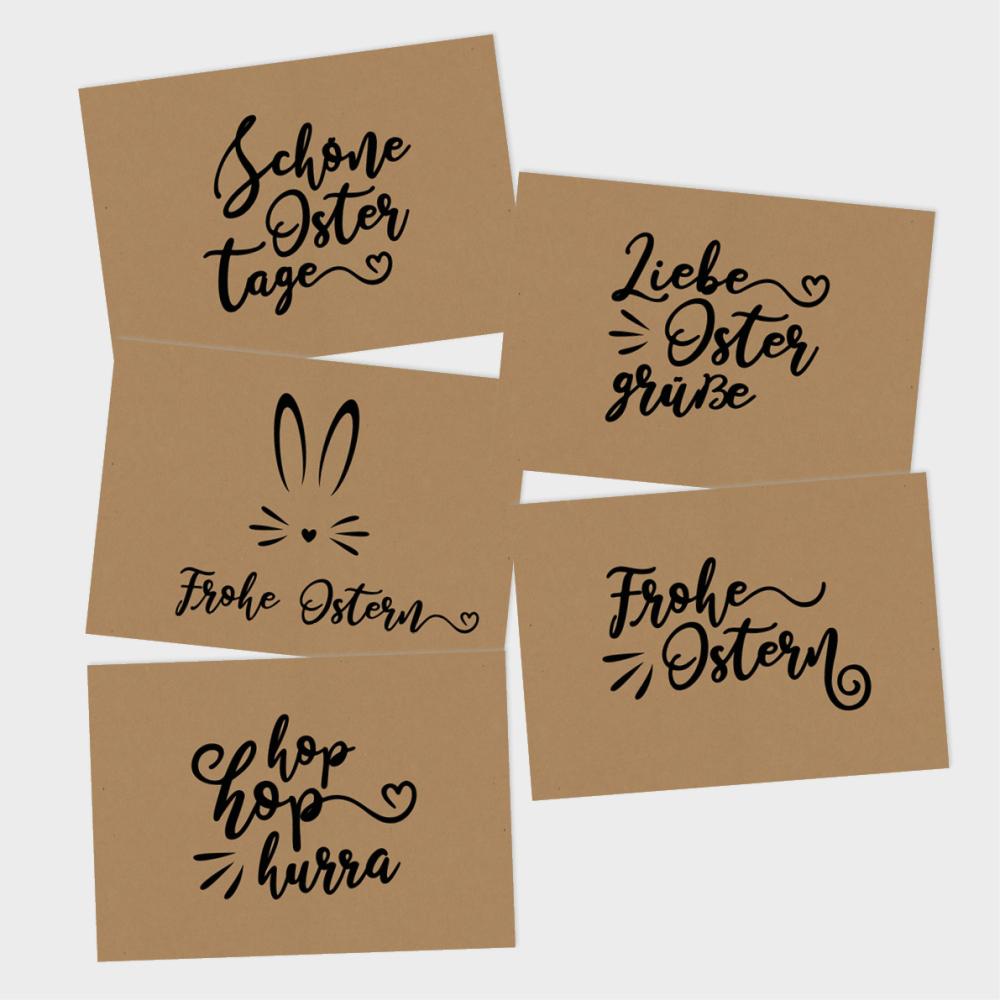 Schöne
Oster
tage
Liebe
Oster
grüße
Frohe Ostern
Frohe
Ostern
hop
hop
hurra